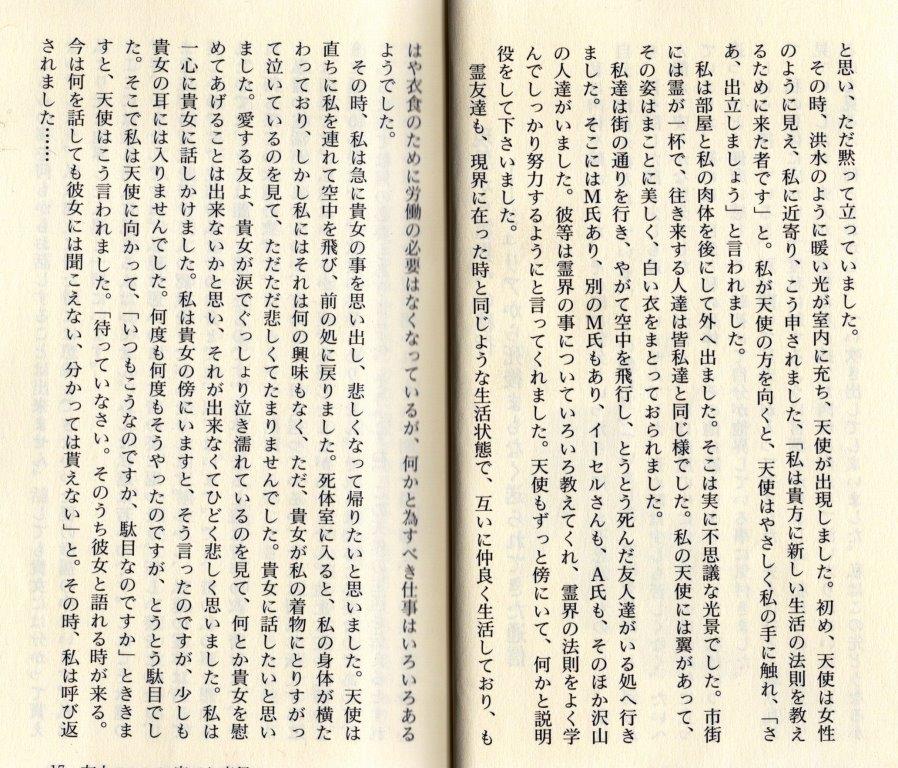 と思い、ただ黙って立っていました。
その時、洪水のように暖い光が室内に充ち、天使が出現しました。初め、天使は女性
のように見え、私に近寄り、こう申されました、「私は貴方に新しい生活の法則を教え
るために来た者です」と。私が天使の方を向くと、天使はやさしく私の手に触れ、「さ
あ、出立しましょう」と言われました。
私は部屋と私の肉体を後にして外へ出ました。そこは実に不思議な光景でした。市街
には霊が一杯で、往き来する人達は皆私達と同じ様でした。私の天使には翼があって、
その姿はまことに美しく、白い衣をまとっておられました。
私達は街の通りを行き、やがて空中を飛行し、とうとう死んだ友人達がいる処へ行き
ました。そこにはM氏あり、別のM氏もあり、イーセルさんも、A氏も、そのほか沢山
の人達がいました。彼等は霊界の事についていろいろ教えてくれ、霊界の法則をよく学
んでしっかり努力するようにと言ってくれました。天使もずっと傍にいて、何かと説明
役をして下さいました。
霊友達も、現界に在った時と同じような生活状態で、互いに仲良く生活しており、も
はや衣食のために労働の必要はなくなっているが、何かと為すべき仕事はいろいろある
ようでした。
その時、私は急に貴女の事を思い出し、悲しくなって帰りたいと思いました。天使は
直ちに私を連れて空中を飛び、前の処に戻りました。死体室に入ると、私の身体が横た
わっており、しかし私にはそれは何の興味もなく、ただ、貴女が私の着物にとりすがっ
て泣いているのを見て、ただただ悲しくてたまりませんでした。貴女に話したいと思い
ました。愛する友よ、貴女が涙でぐっしょり泣き濡れているのを見て、何とか貴女を慰
めてあげることは出来ないかと思い、それが出来なくてひどく悲しく思いました。私は
一心に貴女に話しかけました。私は貴女の傍にいますと、そう言ったのですが、少しも
貴女の耳には入りませんでした。何度も何度もそうやったのですが、とうとう駄目でし
た。そこで私は天使に向かって、「いつもこうなのですか、駄目なのですか」とききま
すと、天使はこう言われました。「待っていなさい。そのうち彼女と語れる時が来る。
今は何を話しても彼女には聞こえない、分かっては貰えない」と。その時、私は呼び返
されました……